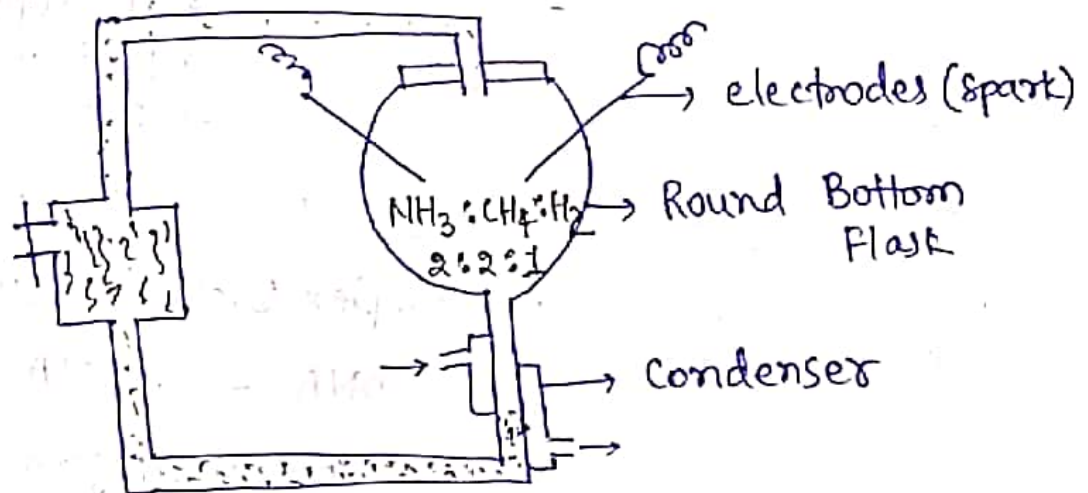 electrodes (spark)
NH₃ : CH₄ : H₂
2 : 2 : 1
Round Bottom
Flask
Condenser